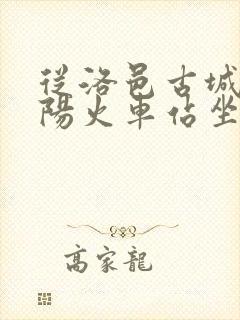 從洛邑古城
陽火車佔坐
高家龍